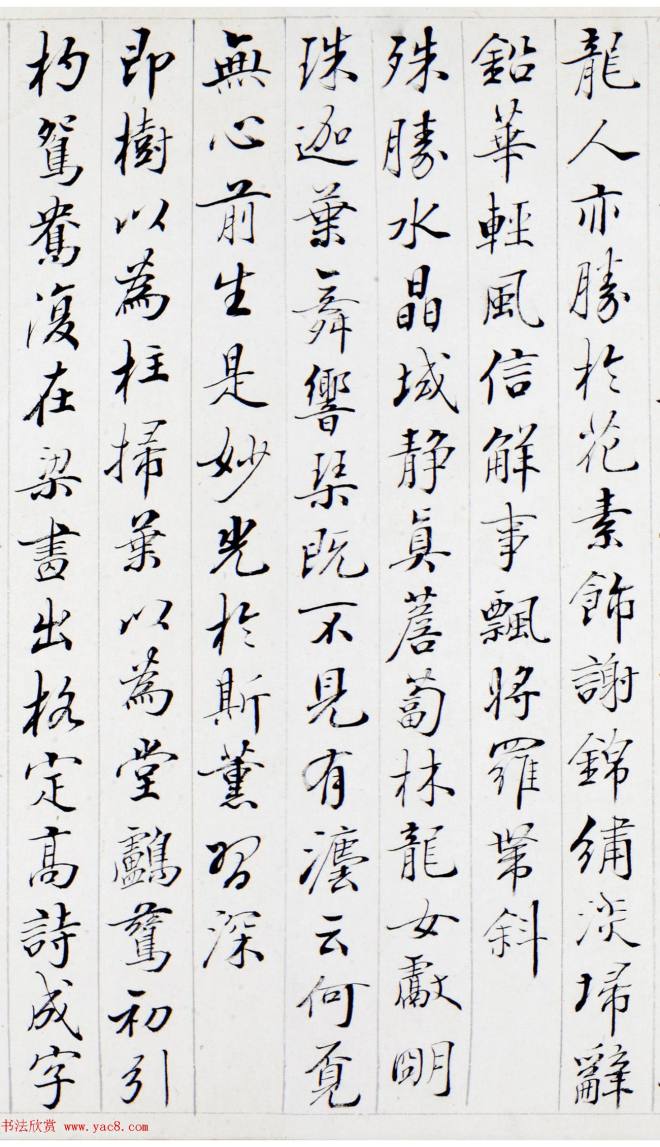 龍人亦勝於花素飾謝錦繡淡埽辭
鉛華輕風信解事飄將羅帶斜
殊勝水晶域静真薝蔔林龍女獻明
珠迦葉舞響琹既不見有瀍云何覓
無心前生是妙光於斯薰習深
即樹以為柱掃葉以為堂鸕鶿初引
杓鴛鴦復在梁畵出格定高詩成字
书法欣赏 www.yac8.com